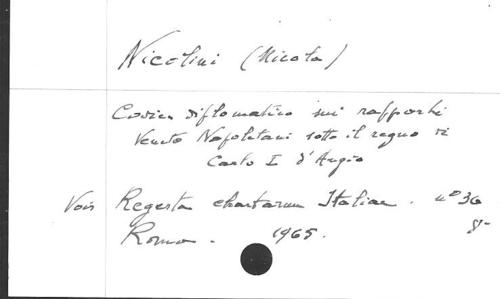 Nicolini (Nicola)
Codice diplomatico sui rapporti
Veneto Napoletani sotto il regno di
Carlo I d'Angio
Voir Regesta chartarum Italiae. n° 36
Roma. 1965. 8°